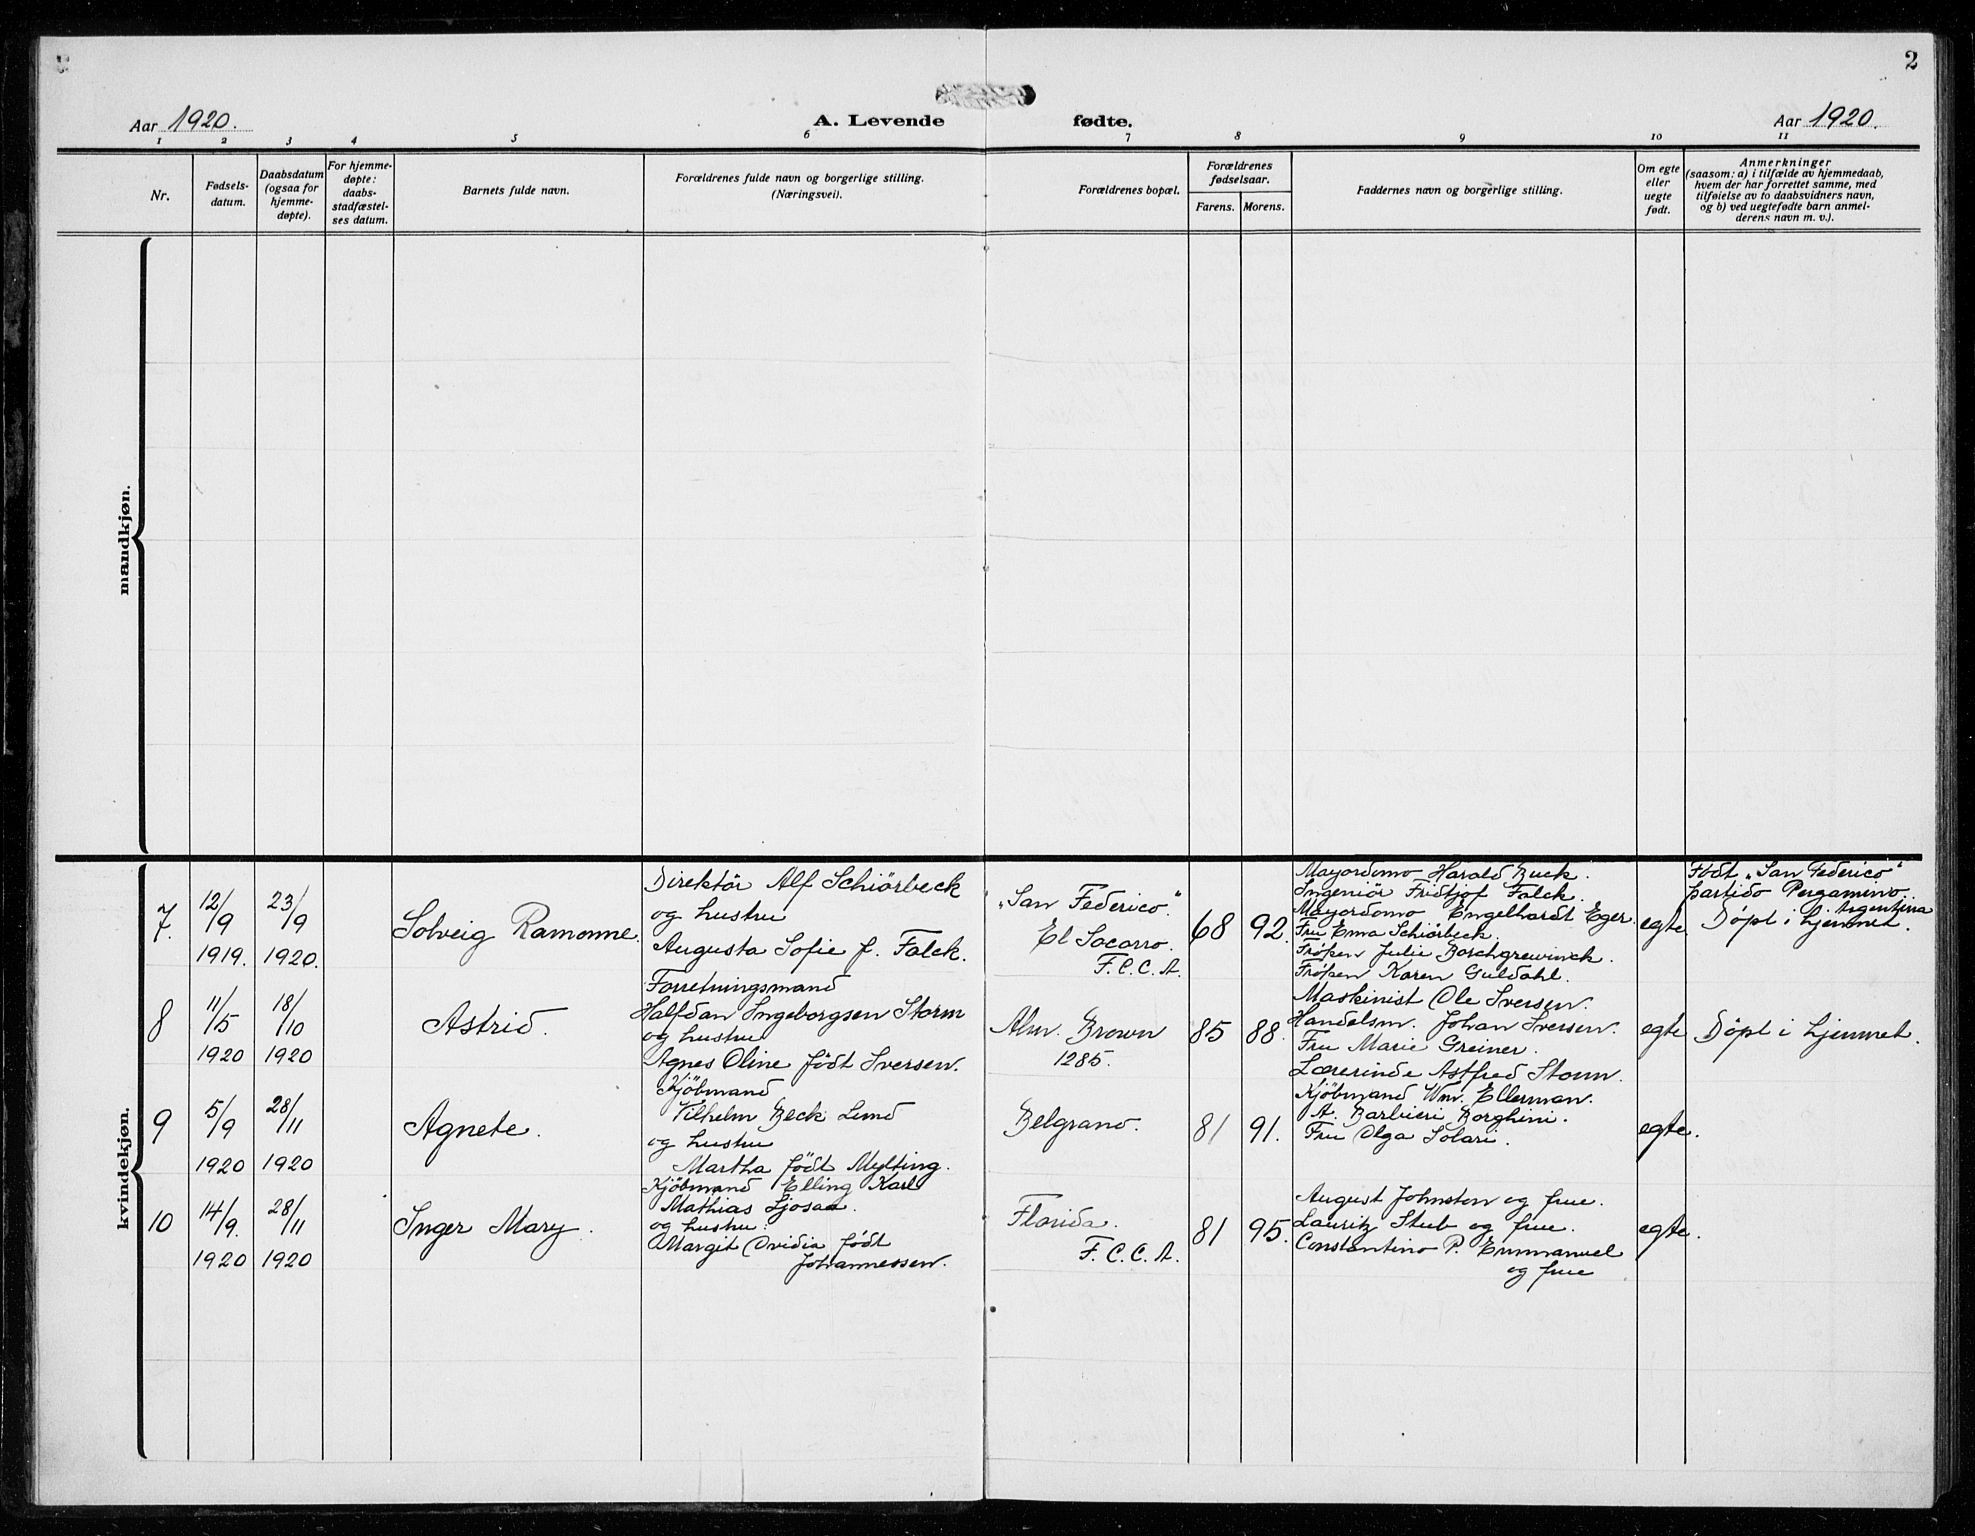 2
Aar 1920.
A. Levende fødte.
Aar 1920.
1 2 3 4 5 6 7 8 9 10 11
Nr.
Fødsels-
datum.
Daabsdatum
(ogsaa for
hjemme-
døpte).
For hjemme-
døpte:
daabs-
stadfæstel-
ses datum.
Barnets fulde navn.
Forældrenes fulde navn og borgerlige stilling.
(Næringsvei).
Forældrenes bopæl.
Forældrenes
fødselsaar.
Farens. Morens.
Faddernes navn og borgerlige stilling.
Om egte
eller
uegte
født.
Anmerkninger
(saasom: a) i tilfælde av hjemmedaab,
hvem der har forrettet samme, med
tilføielse av to daabsvidners navn,
og b) ved uegtefødte barn anmel-
derens navn m. v.).
mandkjøn.
kvindekjøn.
7.
12/9
1919.
23/9
1920.
Solveig Ramonne.
Direktör Alf Schiörbeck
og hustru
Augusta Sofie f. Falck.
"San Federico".
El Socorro.
F.C.C.A.
68
92.
Mayordomo Harald Buck.
Ingeniör Fridtjof Falck.
Mayordomo Engelhardt Eger.
Fru Ema Schiörbeck.
Fröken Julie Borchgrewinck.
Fröken Karen Guldahl.
egte.
Födt "San Federico"
partido Pergamino
Argentina
Döpt i hjemmet.
8
11/5
1920
18/10
1920
Astrid.
Forretningsmand
Halfdan Ingeborgsen Storm
og hustru
Agnes Oline födt Iversen.
Alm. Brown
1285.
85
88.
Maskinist Ole Iversen.
Handelsm. Johan Iversen.
Fru Marie Greiner.
Lærerinde Astfred Storm.
egte
Döpt i hjemmet.
9
5/9
1920
28/11
1920
Agnete.
Kjöbmand
Vilhelm Beck Lund
og hustru
Martha födt Mylting.
Belgrano.
81
91.
Kjöbmand Wm. Ellerman.
A. Barbieri Borghini.
Fru Olga Solari.
egte.
10
14/9.
1920
28/11
1920
Inger Mary.
Kjöbmand Elling Karl
Mathias Ljosaa.
og hustru.
Margit Ovidia födt
Johannessen.
Florida.
F.C.C.A.
81
95.
August Johnston og frue.
Lauritz Stub og frue.
Constantino P. Emmanuel
og frue
egte.